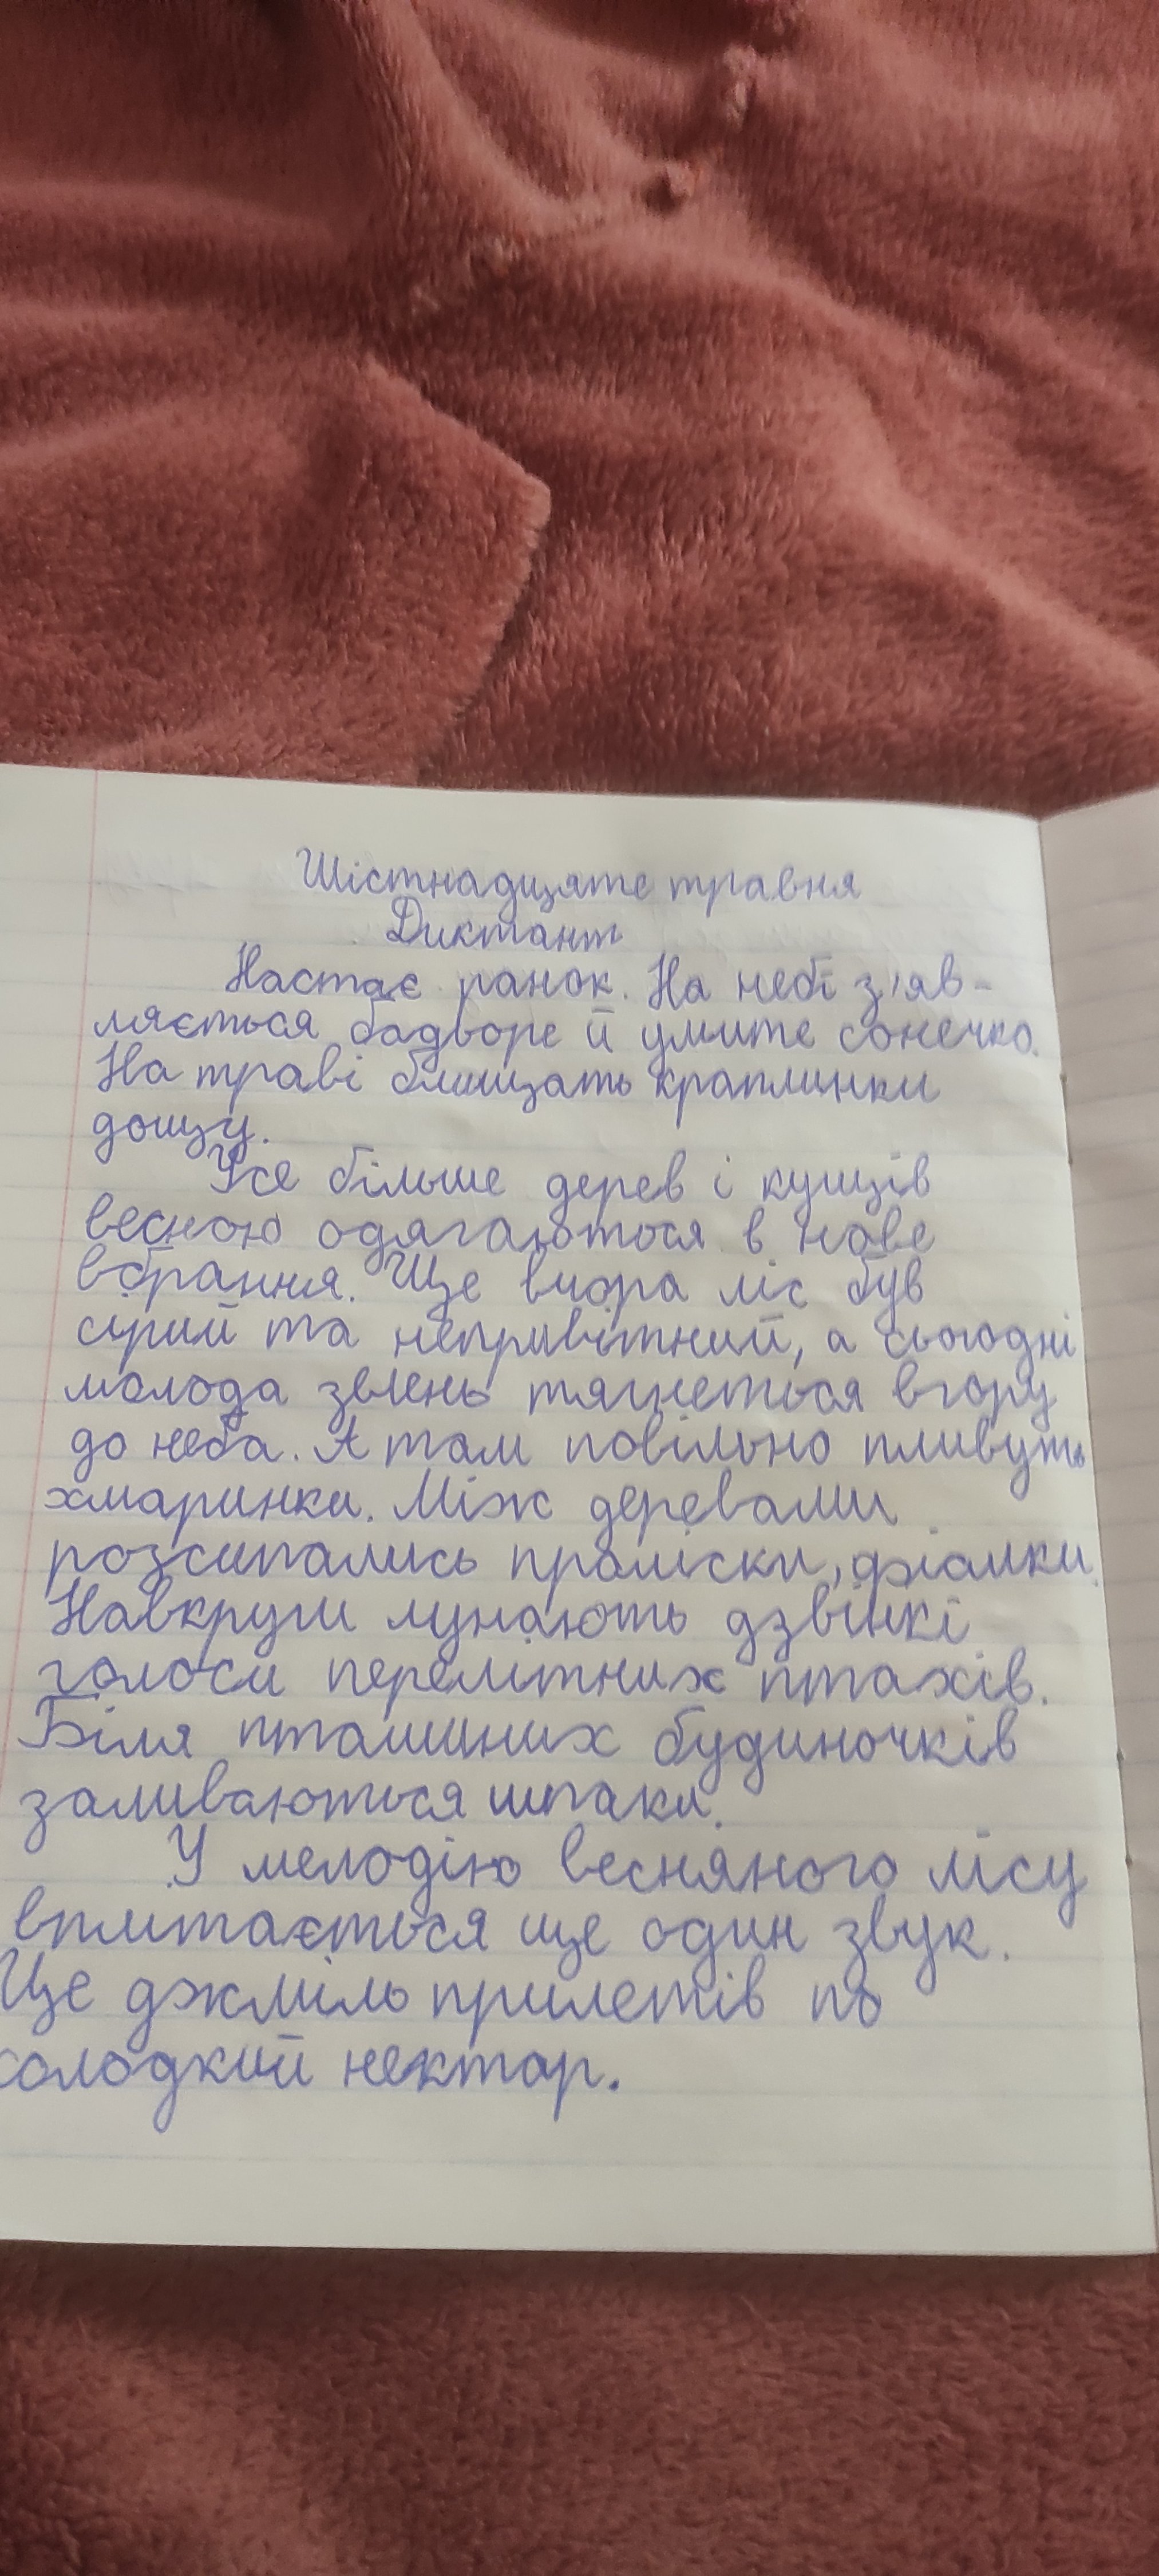 Шістнадцяте травня
Диктант
Настає ранок. На небі з'яв-
ляється бадьоре й умите сонечко.
На траві блищать краплинки
дощу.
Усе більше дерев і кущів
весною одягаються в нове
вбрання. Ще вчора ліс був
сірий та непривітний, а сьогодні
молода зелень тягнеться вгору
до неба. А там повільно пливуть
хмаринки. Між деревами
розсипались проліски, фіалки.
Навкруги лунають дзвінкі
голоси перелітних птахів.
Біля пташиних будиночків
заливаються шпаки.
У мелодію весняного лісу
вплітається ще один звук.
Це джміль прилетів по
солодкий нектар.